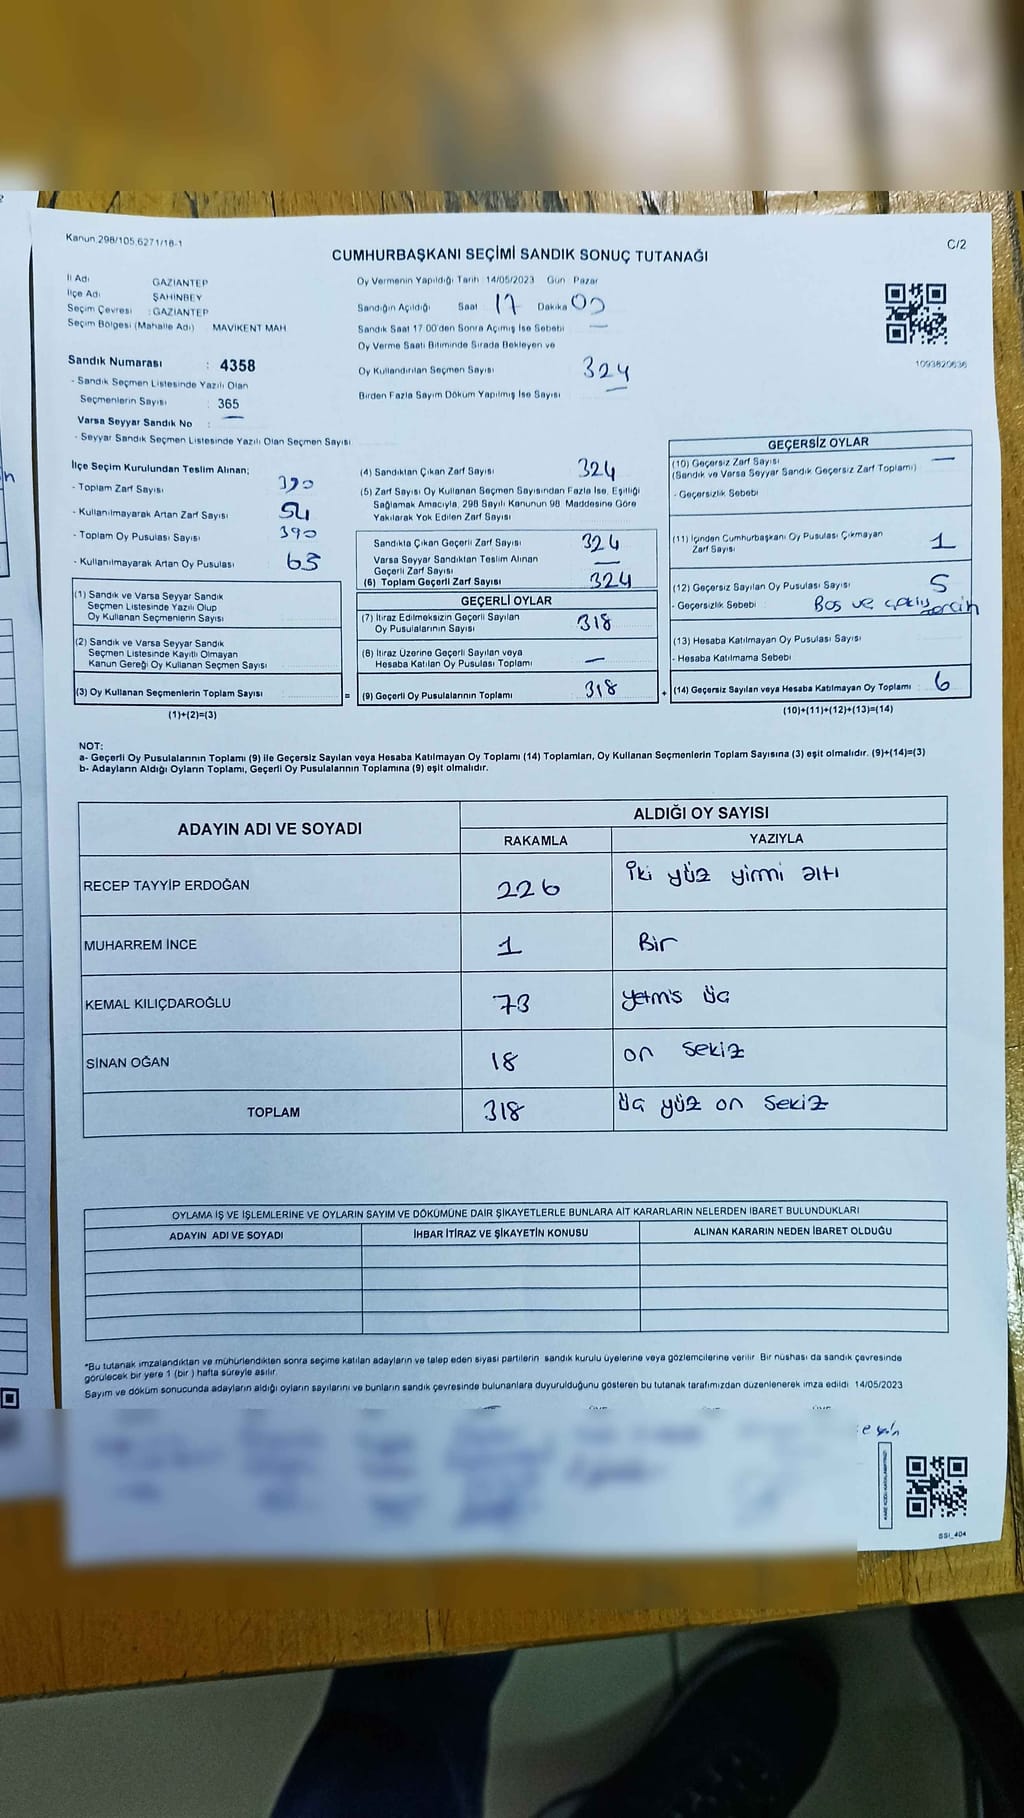 Kanun.298/105.6271/18-1
C/2
CUMHURBAŞKANI SEÇİMİ SANDIK SONUÇ TUTANAĞI
İl Adı GAZİANTEP
İlçe Adı ŞAHİNBEY
Seçim Çevresi : GAZİANTEP
Seçim Bölgesi (Mahalle Adı) MAVİKENT MAH
Oy Vermenin Yapıldığı Tarih 14/05/2023 Gün Pazar
Sandığın Açıldığı Saat 17 Dakika 00
Sandık Saat 17.00'den Sonra Açımış İse Sebebi —
Oy Verme Saati Bitiminde Sırada Bekleyen ve
Oy Kullandırılan Seçmen Sayısı 324
Birden Fazla Sayım Döküm Yapılmış İse Sayısı
1093820636
Sandık Numarası : 4358
- Sandık Seçmen Listesinde Yazılı Olan
Seçmenlerin Sayısı : 365
Varsa Seyyar Sandık No : —
- Seyyar Sandık Seçmen Listesinde Yazılı Olan Seçmen Sayısı
İlçe Seçim Kurulundan Teslim Alınan;
- Toplam Zarf Sayısı 390
- Kullanılmayarak Artan Zarf Sayısı 54
- Toplam Oy Pusulası Sayısı 390
- Kullanılmayarak Artan Oy Pusulası 63
(1) Sandık ve Varsa Seyyar Sandık
Seçmen Listesinde Yazılı Olup
Oy Kullanan Seçmenlerin Sayısı
(2) Sandık ve Varsa Seyyar Sandık
Seçmen Listesinde Kayıtlı Olmayan
Kanun Gereği Oy Kullanan Seçmen Sayısı
(3) Oy Kullanan Seçmenlerin Toplam Sayısı
(1)+(2)=(3)
(4) Sandıktan Çıkan Zarf Sayısı 324
(5) Zarf Sayısı Oy Kullanan Seçmen Sayısından Fazla İse, Eşitliği
Sağlamak Amacıyla; 298 Sayılı Kanunun 98. Maddesine Göre
Yakılarak Yok Edilen Zarf Sayısı
Sandıkta Çıkan Geçerli Zarf Sayısı 324
Varsa Seyyar Sandıktan Teslim Alınan
Geçerli Zarf Sayısı —
(6) Toplam Geçerli Zarf Sayısı 324
GEÇERLİ OYLAR
(7) İtiraz Edilmeksizin Geçerli Sayılan
Oy Pusulalarının Sayısı 318
(8) İtiraz Üzerine Geçerli Sayılan veya
Hesaba Katılan Oy Pusulası Toplamı —
= (9) Geçerli Oy Pusulalarının Toplamı 318
GEÇERSİZ OYLAR
(10) Geçersiz Zarf Sayısı —
(Sandık ve Varsa Seyyar Sandık Geçersiz Zarf Toplamı)
- Geçersizlik Sebebi
(11) İçinden Cumhurbaşkanı Oy Pusulası Çıkmayan
Zarf Sayısı 1
(12) Geçersiz Sayılan Oy Pusulası Sayısı 5
- Geçersizlik Sebebi : Boş ve
(13) Hesaba Katılmayan Oy Pusulası Sayısı
- Hesaba Katılmama Sebebi
+ (14) Geçersiz Sayılan veya Hesaba Katılmayan Oy Toplamı 6
(10)+(11)+(12)+(13)=(14)
NOT:
a- Geçerli Oy Pusulalarının Toplamı (9) ile Geçersiz Sayılan veya Hesaba Katılmayan Oy Toplamı (14) Toplamları, Oy Kullanan Seçmenlerin Toplam Sayısına (3) eşit olmalıdır. (9)+(14)=(3)
b- Adayların Aldığı Oyların Toplamı, Geçerli Oy Pusulalarının Toplamına (9) eşit olmalıdır.
ADAYIN ADI VE SOYADI
ALDIĞI OY SAYISI
RAKAMLA YAZIYLA
RECEP TAYYİP ERDOĞAN 226 iki yüz yirmi altı
MUHARREM İNCE 1 Bir
KEMAL KILIÇDAROĞLU 73 yetmis üç
SİNAN OĞAN 18 on sekiz
TOPLAM 318 üç yüz on sekiz
OYLAMA İŞ VE İŞLEMLERİNE VE OYLARIN SAYIM VE DÖKÜMÜNE DAİR ŞİKAYETLERLE BUNLARA AİT KARARLARIN NELERDEN İBARET BULUNDUKLARI
ADAYIN ADI VE SOYADI İHBAR İTİRAZ VE ŞİKAYETİN KONUSU ALINAN KARARIN NEDEN İBARET OLDUĞU
*Bu tutanak imzalandıktan ve mühürlendikten sonra seçime katılan adayların ve talep eden siyasi partilerin sandık kurulu üyelerine veya gözlemcilerine verilir. Bir nüshası da sandık çevresinde
görülecek bir yere 1 (bir ) hafta süreyle asılır.
Sayım ve döküm sonucunda adayların aldığı oyların sayılarını ve bunların sandık çevresinde bulunanlara duyurulduğunu gösteren bu tutanak tarafımızdan düzenlenerek imza edildi. 14/05/2023
SSİ_404